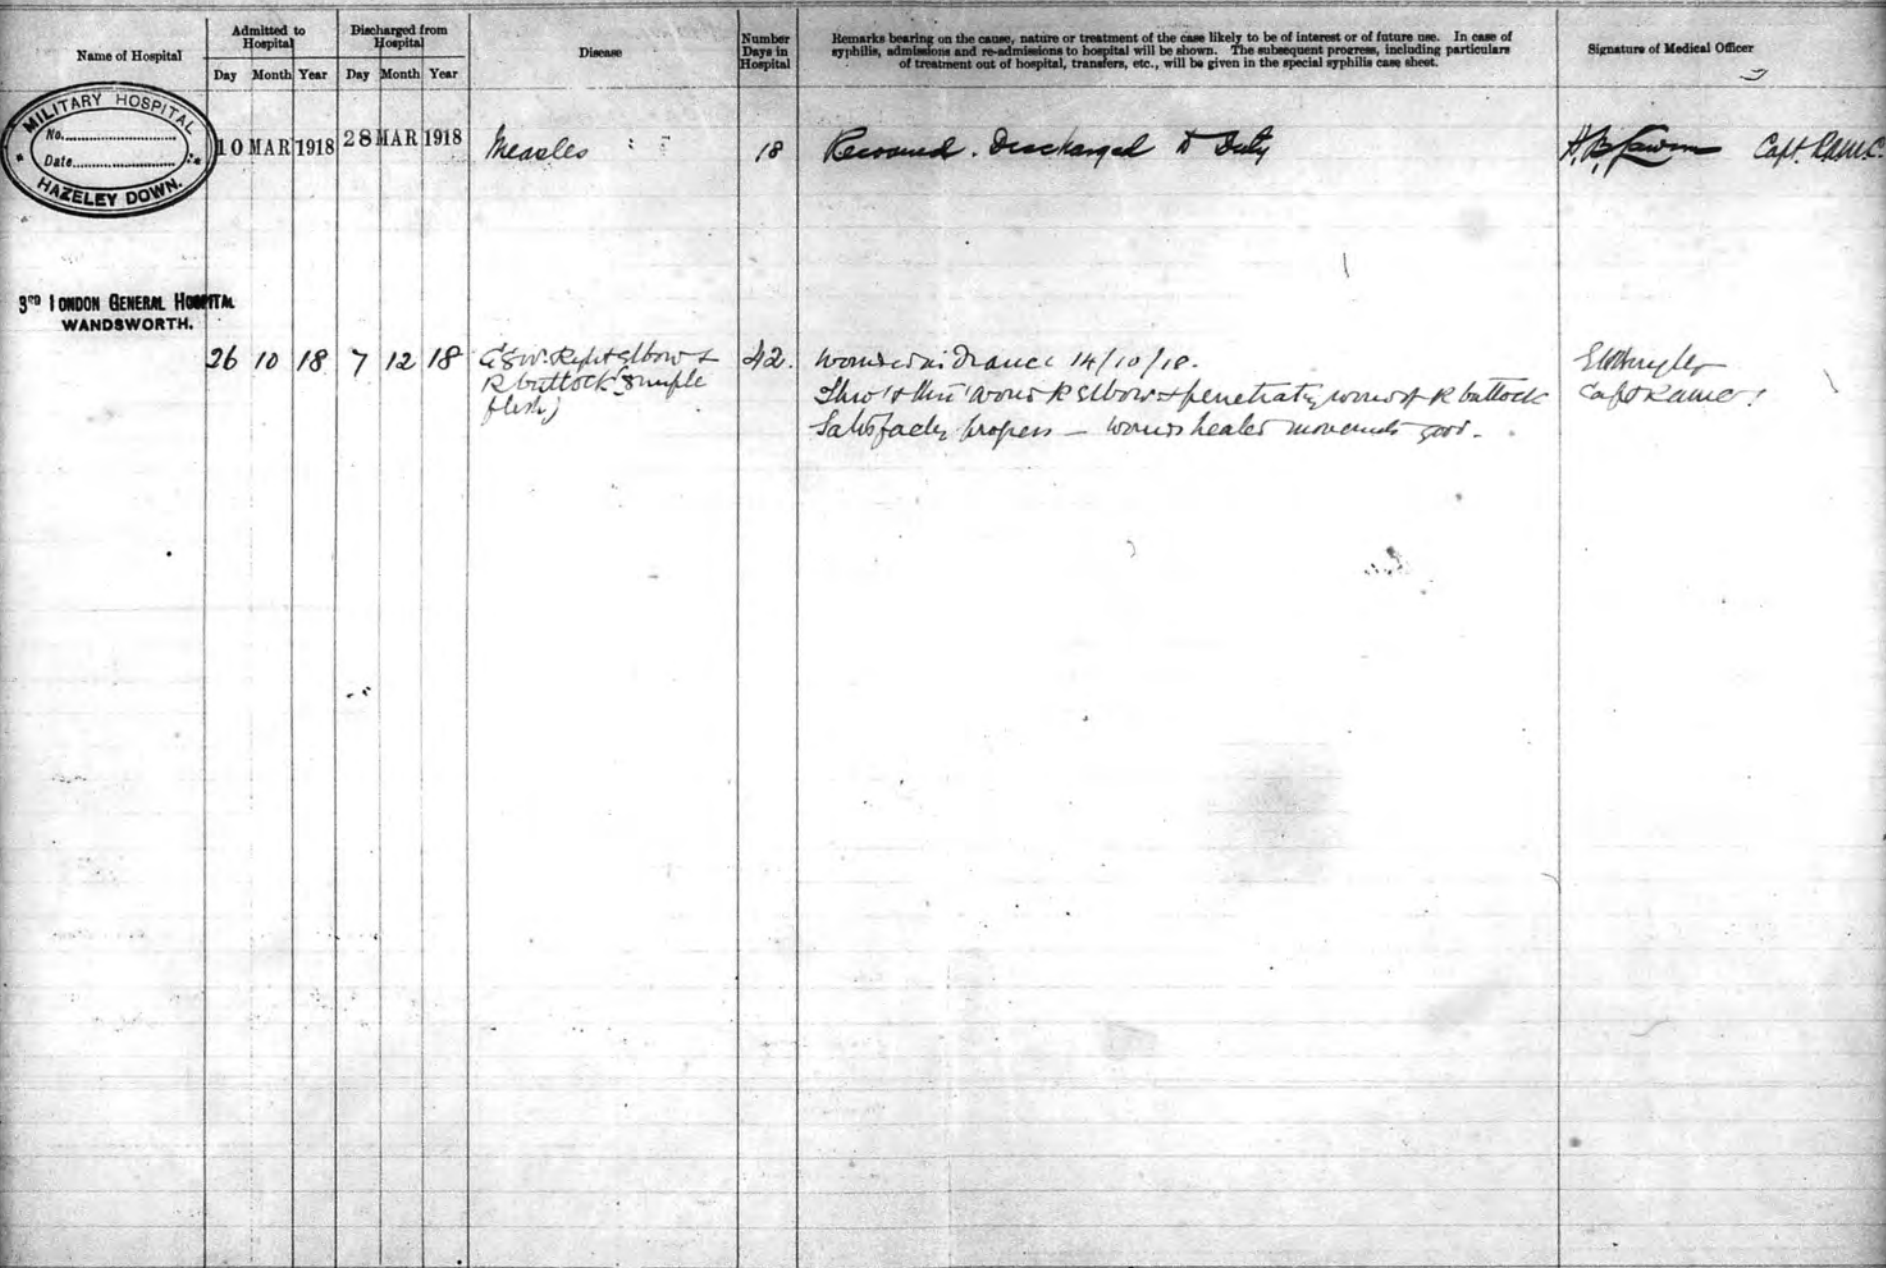 Name of Hospital
Admitted to Hospital
Discharged from Hospital
Day Month Year Day Month Year
Disease
Number Days in Hospital
Remarks bearing on the cause, nature or treatment of the case likely to be of interest or of future use. In case of
syphilis, admissions and re-admissions to hospital will be shown. The subsequent progress, including particulars
of treatment out of hospital, transfers, etc., will be given in the special syphilis case sheet.
Signature of Medical Officer
MILITARY HOSPITAL
No.
Date
HAZELEY DOWN.
10 MAR 1918 28 MAR 1918 Measles 18 Recovered. Discharged to Duty H. B. Capt. R.A.M.C.
3RD LONDON GENERAL HOSPITAL
WANDSWORTH.
26 10 18 7 12 18 G.S.W. Right elbow + 42. Wounded in France 14/10/18.
R buttock (simple
flesh)
Thro' & thro' wound R elbow + penetrating wound of R buttock
Satisfactory progress — wounds healed movements good.
Capt RAMC.